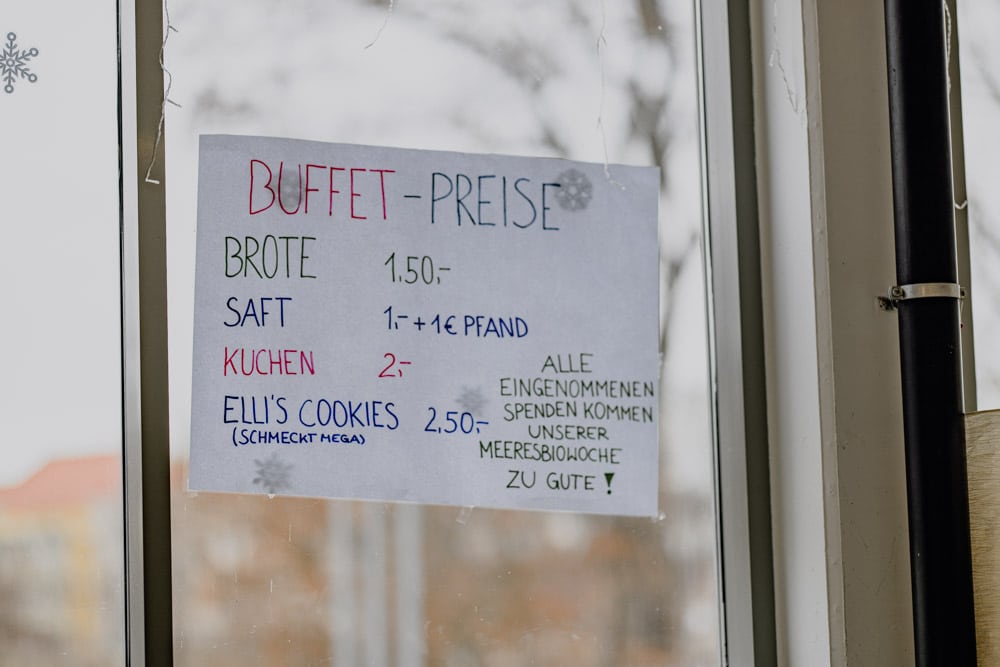 BUFFET-PREISE
BROTE 1.50,-
SAFT 1,- + 1€ PFAND
KUCHEN 2,-
ELLI'S COOKIES 2,50,-
(SCHMECKT MEGA)
ALLE
EINGENOMMENEN
SPENDEN KOMMEN
UNSERER
MEERESBIOWOCHE
ZU GUTE !